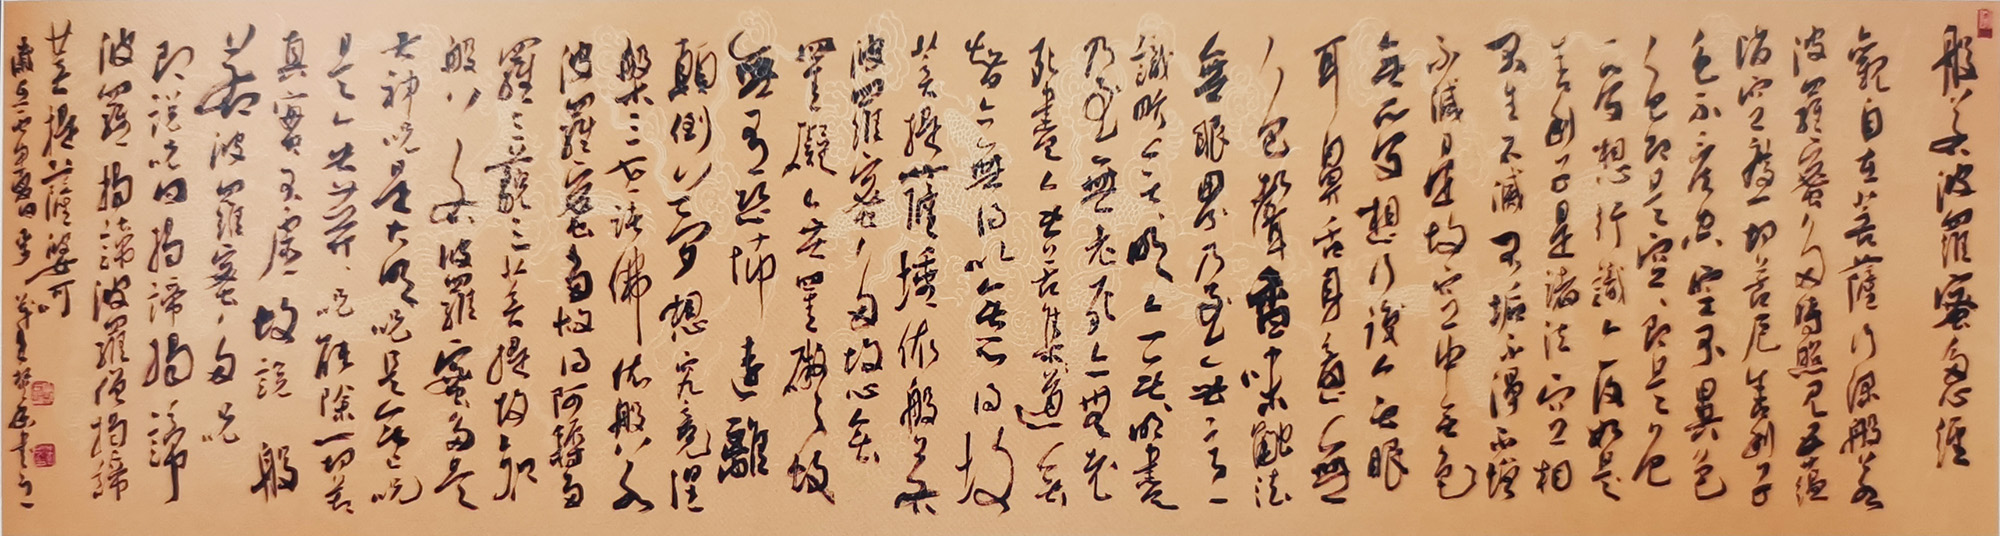 般若波羅蜜多心經
觀自在菩薩行深般若
波羅蜜多時照見五蘊
皆空度一切苦厄舍利子
色不異空空不異色
色即是空空即是色
受想行識亦復如是
舍利子是諸法空相
不生不滅不垢不淨不增
不減是故空中無色
無受想行識無眼
耳鼻舌身意無
色聲香味觸法
無眼界乃至無意
識界無無明亦無無明盡
乃至無老死亦無老
死盡無苦集滅道無
智亦無得以無所得故
菩提薩埵依般若
波羅蜜多故心無
罣礙無罣礙故
無有恐怖遠離
顛倒夢想究竟涅
槃三世諸佛依般若
波羅蜜多故得阿耨多
羅三藐三菩提故知
般若波羅蜜多是
大神咒是大明咒是無上咒
是無等等咒能除一切苦
真實不虛故說般
若波羅蜜多咒
即說咒曰揭諦揭諦
波羅揭諦波羅僧揭諦
菩提薩婆訶